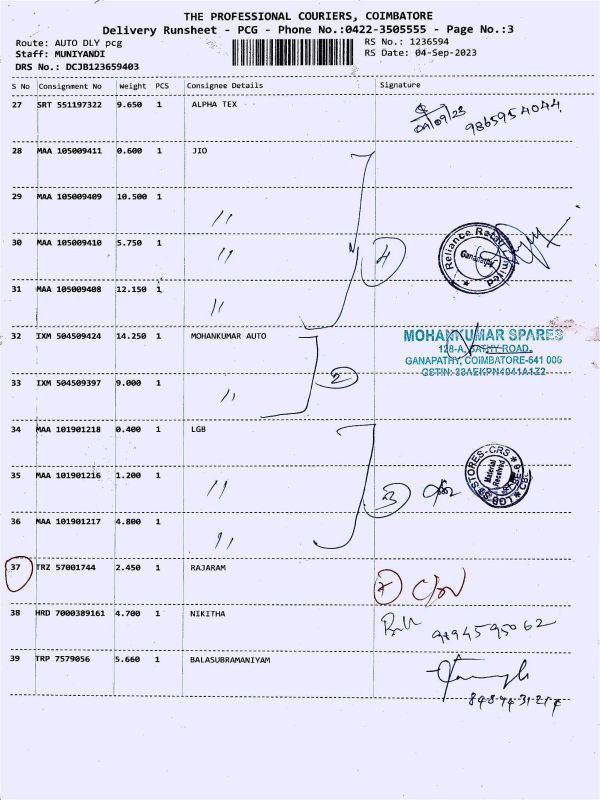 THE PROFESSIONAL COURIERS, COIMBATORE
Delivery Runsheet - PCG - Phone No.:0422-3505555 - Page No.:3
Route: AUTO DLY pcg
RS No.: 1236594
Staff: MUNIYANDI
RS Date: 04-Sep-2023
DRS No.: DCJB123659403
S No Consignment No Weight PCS Consignee Details Signature
27 SRT 551197322 9.650 1 ALPHA TEX
04/09/23 9865954044
28 MAA 105009411 0.600 1 JIO
29 MAA 105009409 10.500 1 "
30 MAA 105009410 5.750 1 " 4
Reliance Retail Limited
Ganapathy
31 MAA 105009408 12.150 1 "
32 IXM 504509424 14.250 1 MOHANKUMAR AUTO
MOHANKUMAR SPARES
128-A, SATHY ROAD,
GANAPATHY, COIMBATORE-641 006
GSTIN: 33AEKPN4941A1Z2
33 IXM 504509397 9.000 1 " 2
34 MAA 101901218 0.400 1 LGB
35 MAA 101901216 1.200 1 " 3
STORES-CRS
Material
Received
LGB
36 MAA 101901217 4.800 1 "
37 TRZ 57001744 2.450 1 RAJARAM
38 HRD 7000389161 4.700 1 NIKITHA
9894595062
39 TRP 7579056 5.660 1 BALASUBRAMANIYAM